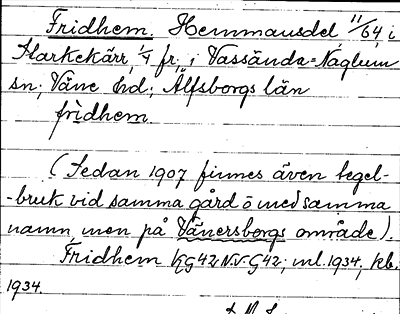 Fridhem. Hemmansdel 11/64, i
Starkekärr, 1/4 fr., i Vassända=Naglum
sn; Väne hd; Älfsborgs län
frìdhem.
(Sedan 1907 finnes även tegel-
-bruk vid samma gård o med samma
namn, men på Vänersborgs område).
Fridhem KG42N.V.G42; ml. 1934; kb.
1934.